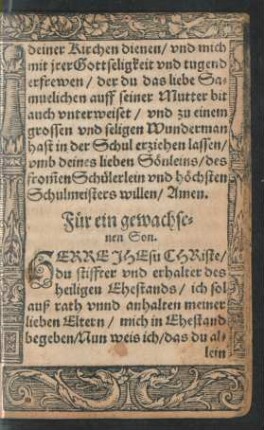 deiner Kirchen dienen / vnd mich
mit jrer Gottseligkeit vnd tugend
erfrewen / der du das liebe Sa-
muelichen auff seiner Mutter bit
auch vnterweiset / vnd zu einem
grossen vnd seligen Wunderman
hast in der Schul erziehen lassen /
vmb deines lieben Sönleins / des
from̃en Schülerlein vnd höchsten
Schulmeisters willen / Amen.
Für ein gewachse-
nen Son.
HERRE JHEsu CHRiste /
du stiffter vnd erhalter des
heiligen Ehestands / ich sol
auß rath vnnd anhalten meiner
lieben Eltern / mich in Ehestand
begeben / Nun weis ich / das du al-
lein